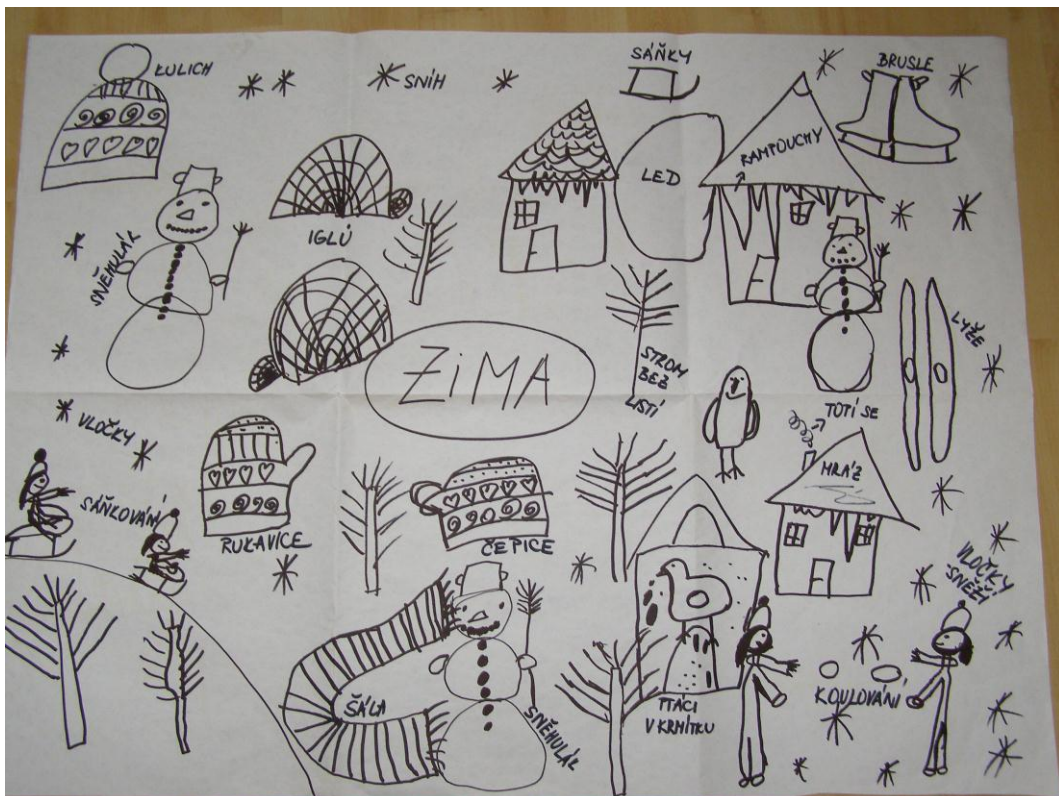 KULICH
SNÍH
SÁŇKY
BRUSLE
RAMPOUCHY
LED
IGLÚ
SNĚHULÁK
ZiMA
STROM
BEZ
LISTÍ
LYŽE
TOPÍ SE
VLOČKY
MRÁZ
SÁŇKOVÁNÍ
RUKAVICE
ČEPICE
VLOČKY
SNĚŽÍ
ŠÁLA
SNĚHULÁK
PTÁCI
V KRMÍTKU
KOULOVÁNÍ